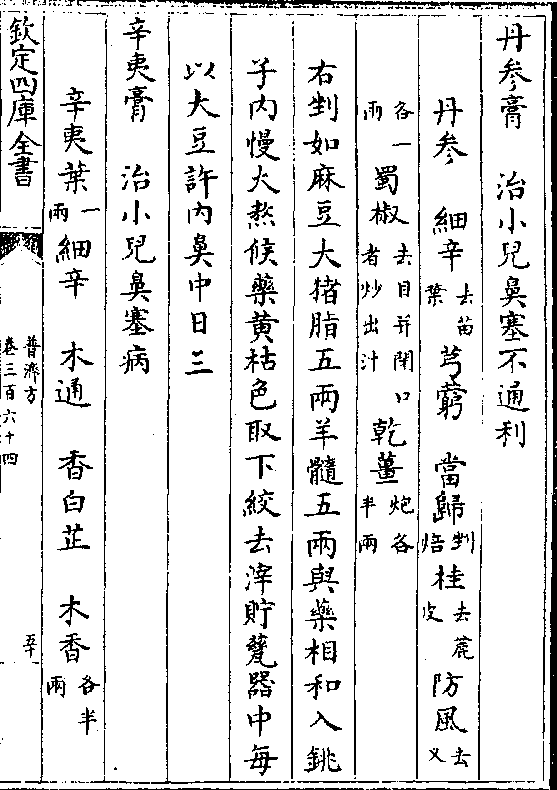 丹參膏　治小兒鼻塞不通利
丹參　細辛去苗葉　芎藭　當歸剉焙　桂去麄皮　防風去叉
各一兩　蜀椒去目并閉口者炒出汁　乾薑炮各半兩
右剉如麻豆大猪脂五兩羊髓五兩與藥相和入銚
子内慢火熬候藥黄枯色取下絞去滓貯甆器中每
以大豆許内鼻中日三
辛夷膏　治小兒鼻塞病
辛夷葉一兩　細辛　木通　香白芷　木香各半兩
欽定四庫全書
普濟方
卷三百六十四